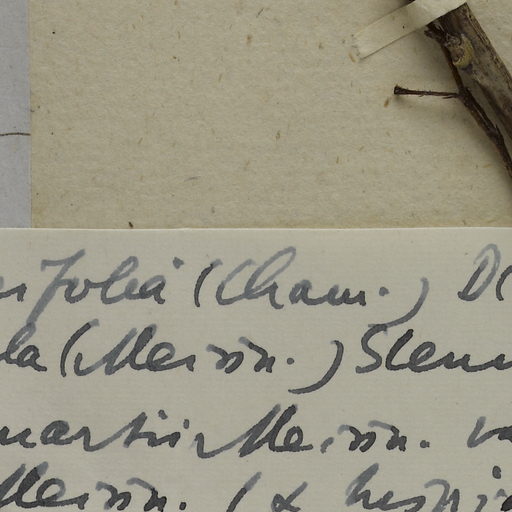 ifolia (Cham.) D
la (Meissn.) Sleum
martii Meissn. va
Meissn. (& hispid